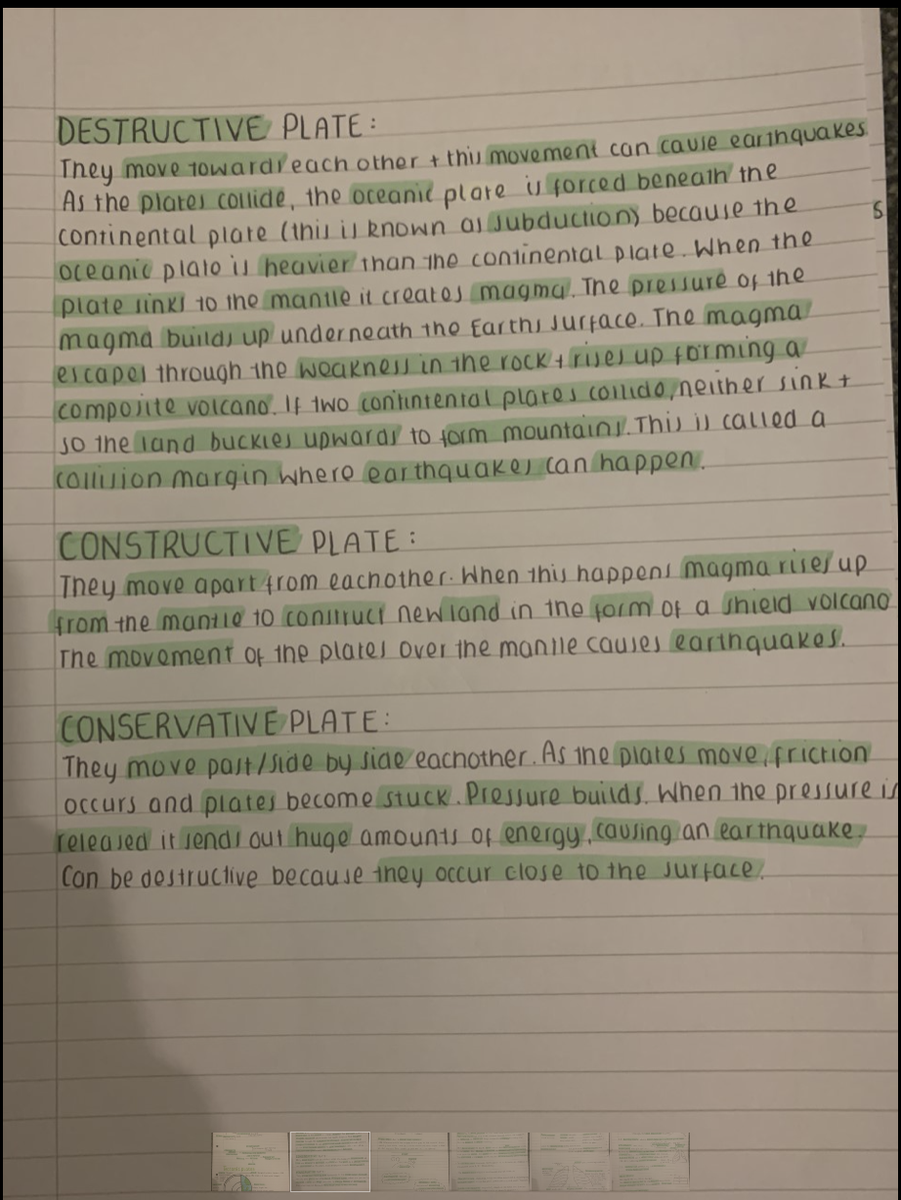 DESTRUCTIVE PLATE:
They move towards each other + this movement can cause earthquakes
As the plates collide, the oceanic plate is forced beneath the
continental plate (this is known as subduction) because the
oceanic plate is heavier than the continental plate. When the
plate sinks to the mantle it creates magma. The pressure of the
magma builds up underneath the Earths surface. The magma
escapes through the weakness in the rock + rises up forming a
composite volcano. If two continental plates collide, neither sink +
so the land buckles upwards to form mountains. This is called a
collision margin where earthquakes can happen.
CONSTRUCTIVE PLATE:
They move apart from eachother. When this happens magma rises up
from the mantle to construct new land in the form of a shield volcano
The movement of the plates over the mantle causes earthquakes.
CONSERVATIVE PLATE:
They move past/side by side eachother. As the plates move, friction
occurs and plates become stuck. Pressure builds. When the pressure is
released it sends out huge amounts of energy, causing an earthquake.
Can be destructive because they occur close to the surface.